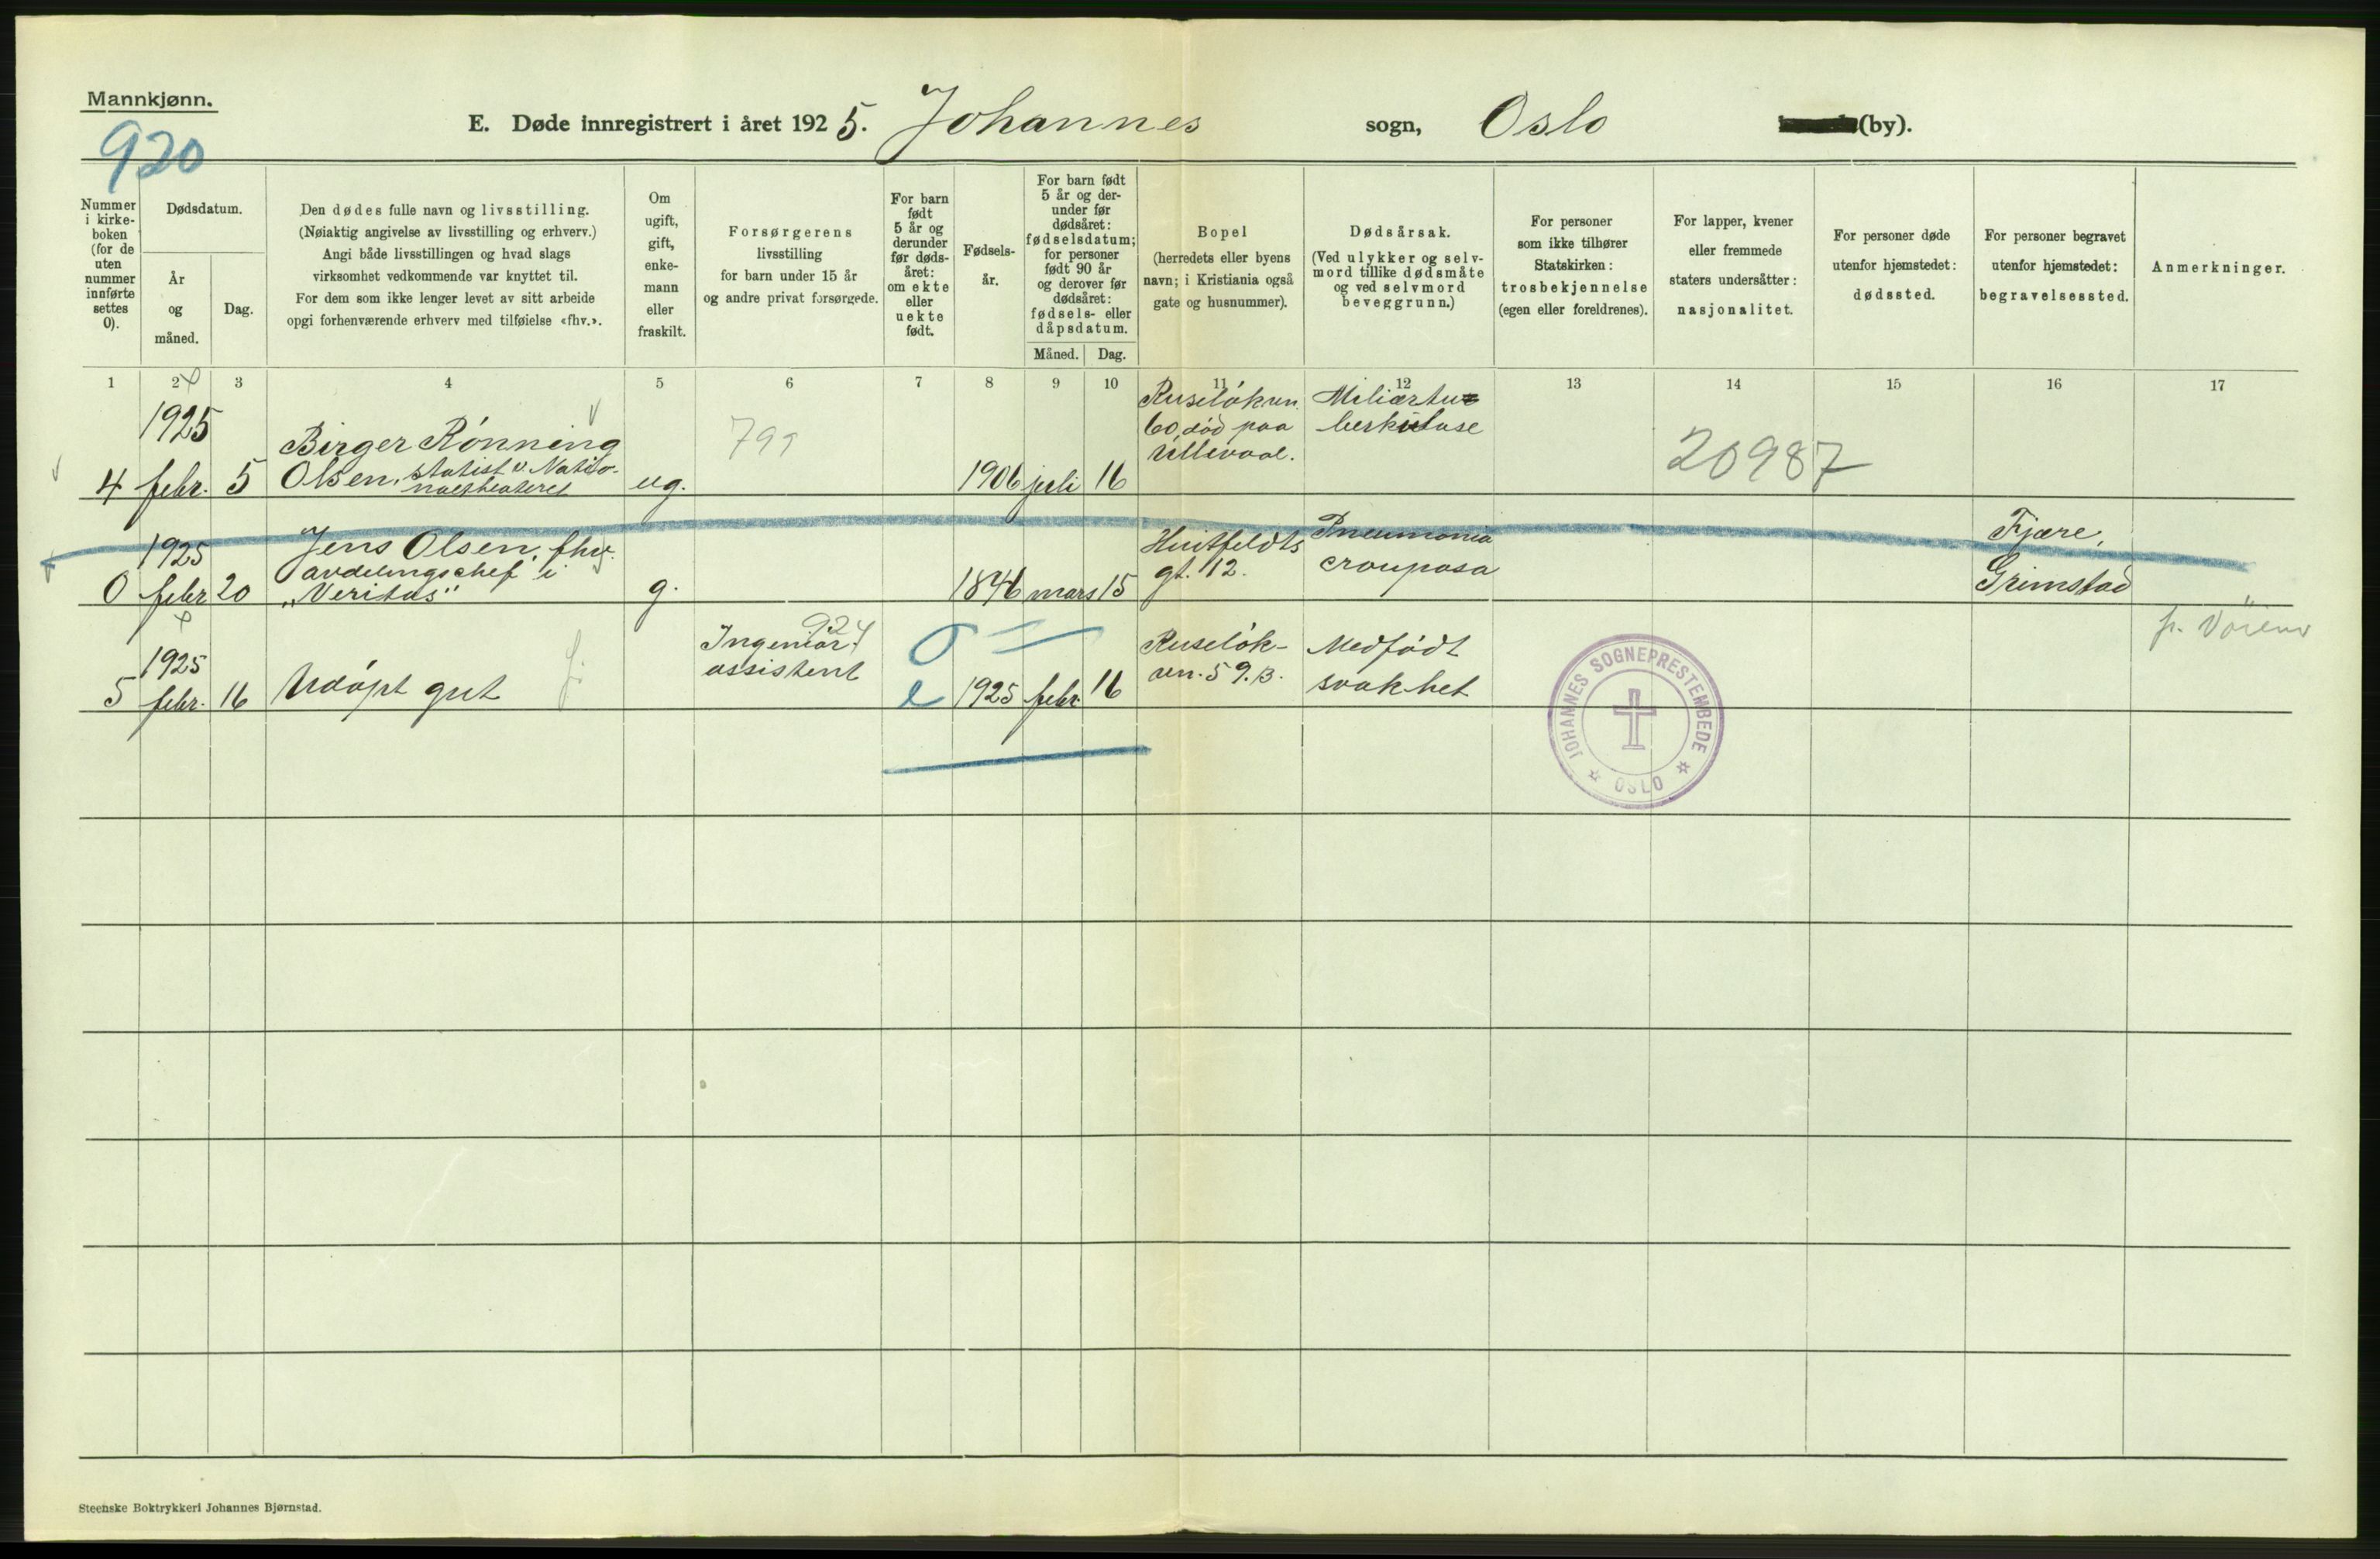 Mannkjønn.
920
E. Døde innregistrert i året 1925. Johannes sogn, Oslo (by).
Nummer i kirke- boken (for de uten nummer innførte settes 0).
Dødsdatum.
År og måned.
Dag.
Den dødes fulle navn og livsstilling.
(Nøiaktig angivelse av livsstilling og erhverv.)
Angi både livsstillingen og hvad slags
virksomhet vedkommende var knyttet til.
For dem som ikke lenger levet av sitt arbeide
opgi forhenværende erhverv med tilføielse «fhv.».
Om ugift, gift, enke- mann eller fraskilt.
Forsørgerens
livsstilling
for barn under 15 år
og andre privat forsørgede.
For barn født 5 år og derunder før døds- året: om ekte eller uekte født.
Fødsels- år.
For barn født 5 år og der- under før dødsåret: fødselsdatum; for personer født 90 år og derover før dødsåret: fødsels- eller dåpsdatum.
Måned. Dag.
Bopel
(herredets eller byens
navn; i Kristiania også
gate og husnummer).
Dødsårsak.
(Ved ulykker og selv-
mord tillike dødsmåte
og ved selvmord
beveggrunn.)
For personer
som ikke tilhører
Statskirken:
trosbekjennelse
(egen eller foreldrenes).
For lapper, kvener
eller fremmede
staters undersåtter:
nasjonalitet.
For personer døde
utenfor hjemstedet:
dødssted.
For personer begravet
utenfor hjemstedet:
begravelsessted.
Anmerkninger.
1 2 3 4 5 6 7 8 9 10 11 12 13 14 15 16 17
1925
4 febr. 5
Birger Rönning
Olsen, statist v. Natio-
naltheateret
ug.
799
1906 juli 16
Ruselökvn.
60, död paa
Ullevaal.
Miliærtu-
berkulose
20987
1925
0 febr 20
Jens Olsen, fhv.
avdelingschef i
"Veritas"
g.
1846 mars 15
Huitfeldts
gt. 12.
Pneumonia
crouposa
Fjære,
Grimstad
1925
5 febr. 16
Udöpt gut
924
Ingeniör
assistent
e
1925 febr. 16
Ruselök-
vn. 59.B.
Medfödt
svakhet
JOHANNES SOGNEPRESTEMBEDE
OSLO
Steenske Boktrykkeri Johannes Bjørnstad.